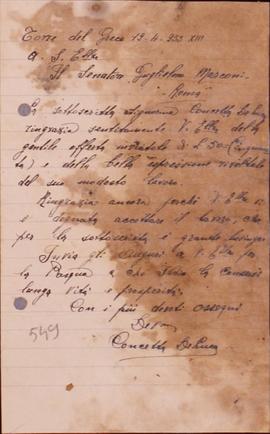 Torre del Greco 19-4-935 XIII
A. S. Ella
Il Senatore Guglielmo Marconi
Roma
La sottoscritta Signorina Concetta De Luca
ringrazia sentitamente V. Ella della
gentile offerta di £ 50= (cinquan
ta) e della bella espressione rivoltale
del suo modesto lavoro.
Ringrazia ancora perchè V. Ella si
è degnata accettare il lavoro, che
per la sottoscritta è grande
Invia gli auguri a V. Ella per
la Pasqua e che Iddio la
lunga vita e prosperità.
Con i più devoti ossequi
Dev.
Concetta De Luca
549